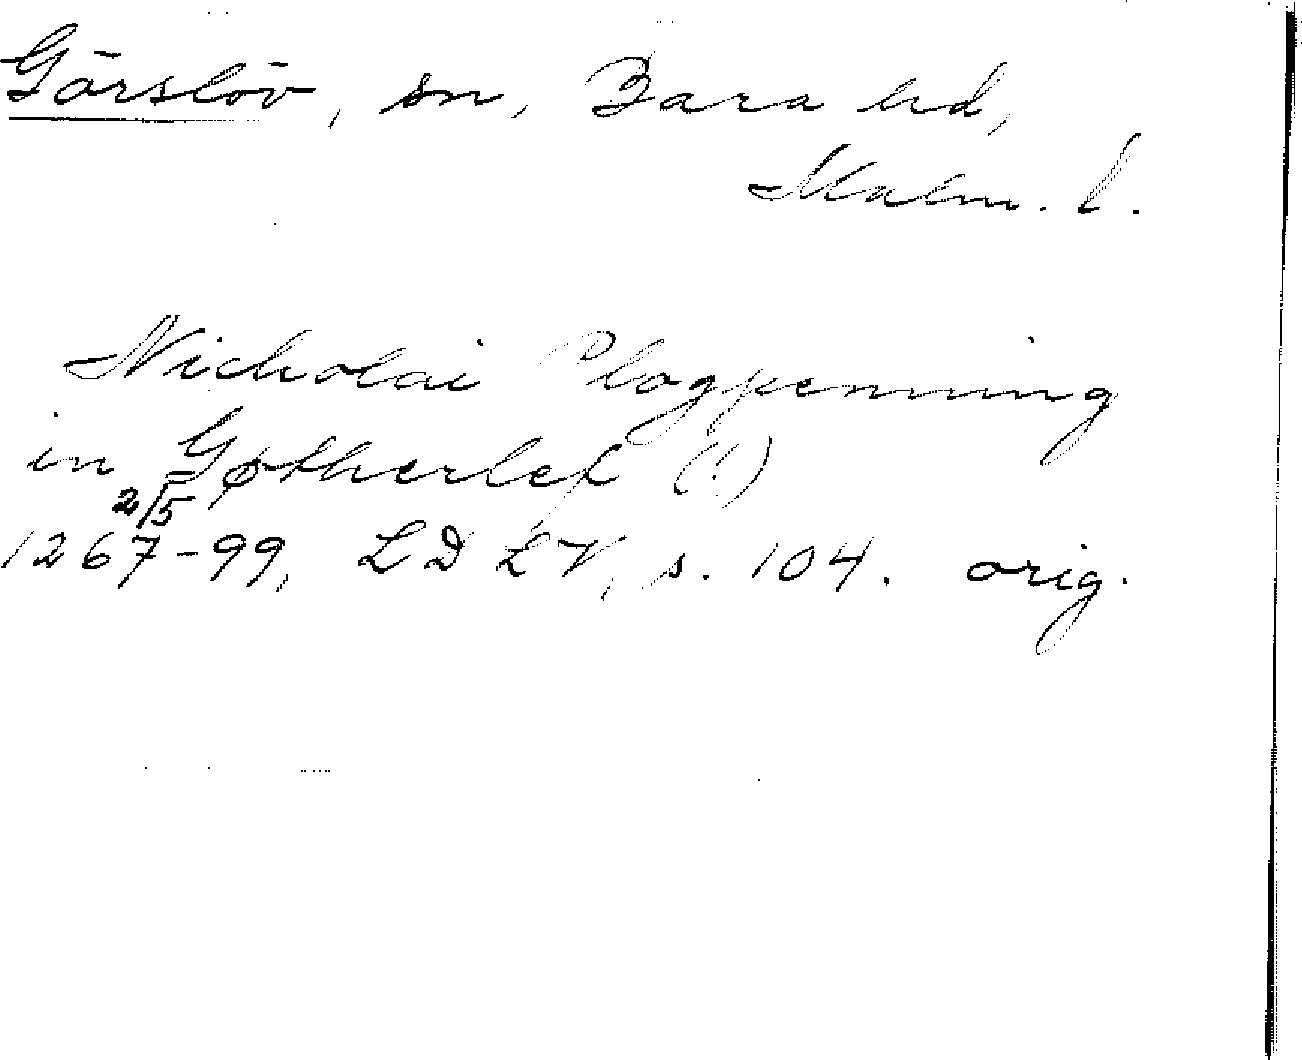 Görslöv, sn, Bara hd,
Malm. l.
Nicholai Plogpenning
in Gøtherlef (!)
2/5
1267-99, LD LV, s. 104. orig.